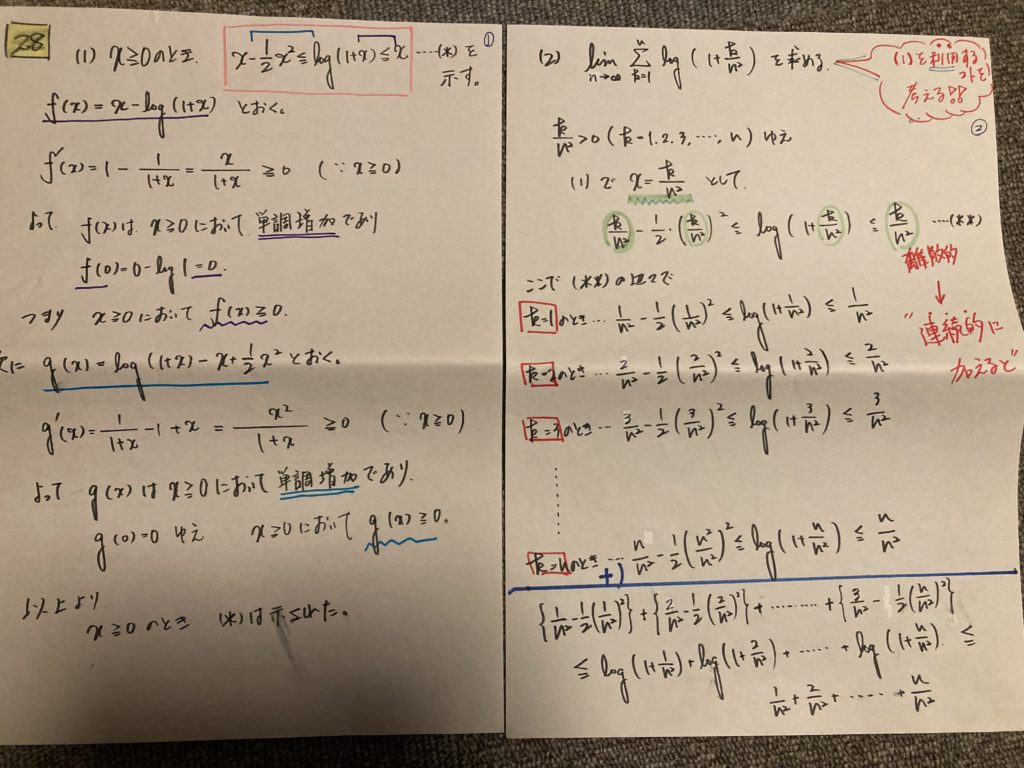 28
(1) x≧0のとき. x-1/2x²≦log(1+x)≦x ……(*)を
示す。
①
f(x)=x-log(1+x) とおく。
f'(x)=1-1/(1+x)=x/(1+x)≧0 (∵x≧0)
よって f(x)は x≧0において 単調増加であり
f(0)=0-log1=0.
つまり x≧0において f(x)≧0.
次に g(x)=log(1+x)-x+1/2x² とおく。
g'(x)=1/(1+x)-1+x=x²/(1+x)≧0 (∵x≧0)
よって g(x)は x≧0において 単調増加であり.
g(0)=0 ゆえ x≧0において g(x)≧0.
以上より
x≧0のとき (*)は示された。
(2) lim n→∞ Σ k=1 n log(1+k/n²) を求める.
(1)を利用する
ことを
考える!!
②
k/n²>0 (k=1.2.3,……,n) ゆえ
(1)で x=k/n² として.
k/n²-1/2・(k/n²)²≦log(1+k/n²)≦k/n² ……(**)
ここで (**)の辺々で
離散的
↓
"連続的に
加えると"
k=1のとき… 1/n²-1/2(1/n²)²≦log(1+1/n²)≦1/n²
k=2のとき… 2/n²-1/2(2/n²)²≦log(1+2/n²)≦2/n²
k=3のとき… 3/n²-1/2(3/n²)²≦log(1+3/n²)≦3/n²
k=nのとき… n/n²-1/2(n²/n²)²≦log(1+n/n²)≦n/n²
+)
{1/n²-1/2(1/n²)²}+{2/n²-1/2(2/n²)²}+………+{3/n²-1/2(n/n²)²}
≦log(1+1/n²)+log(1+2/n²)+……+log(1+n/n²)≦
1/n²+2/n²+……+n/n²